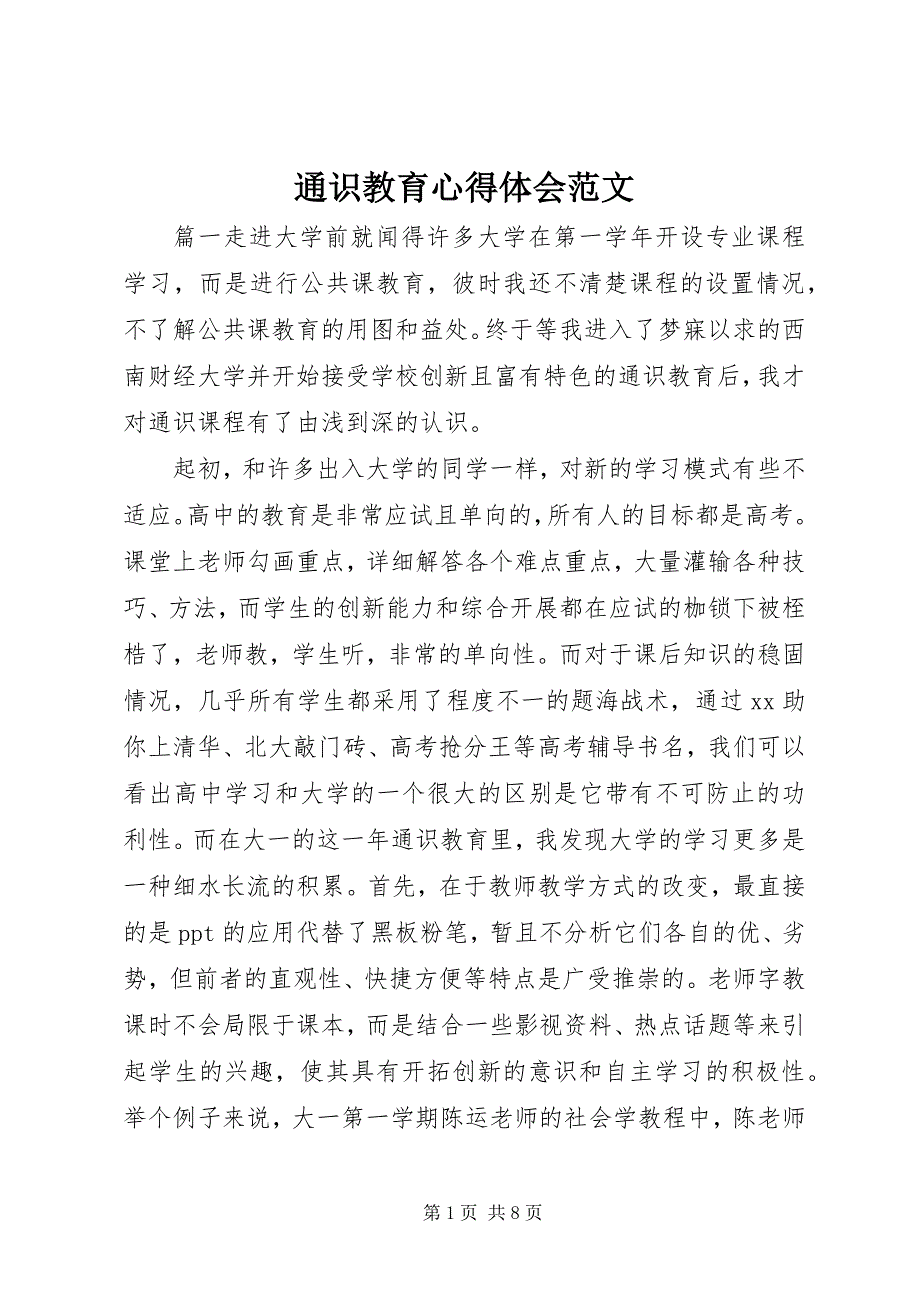 通识教育心得体会范文
篇一走进大学前就闻得许多大学在第一学年开设专业课程
学习，而是进行公共课教育，彼时我还不清楚课程的设置情况，
不了解公共课教育的用图和益处。终于等我进入了梦寐以求的西
南财经大学并开始接受学校创新且富有特色的通识教育后，我才
对通识课程有了由浅到深的认识。
起初，和许多出入大学的同学一样，对新的学习模式有些不
适应。高中的教育是非常应试且单向的，所有人的目标都是高考。
课堂上老师勾画重点，详细解答各个难点重点，大量灌输各种技
巧、方法，而学生的创新能力和综合开展都在应试的枷锁下被桎
梏了，老师教，学生听，非常的单向性。而对于课后知识的稳固
情况，几乎所有学生都采用了程度不一的题海战术，通过 xx 助
你上清华、北大敲门砖、高考抢分王等高考辅导书名，我们可以
看出高中学习和大学的一个很大的区别是它带有不可防止的功
利性。而在大一的这一年通识教育里，我发现大学的学习更多是
一种细水长流的积累。首先，在于教师教学方式的改变，最直接
的是 ppt 的应用代替了黑板粉笔，暂且不分析它们各自的优、劣
势，但前者的直观性、快捷方便等特点是广受推崇的。老师字教
课时不会局限于课本，而是结合一些影视资料、热点话题等来引
起学生的兴趣，使其具有开拓创新的意识和自主学习的积极性。
举个例子来说，大一第一学期陈运老师的社会学教程中，陈老师
第 1 页 共 8 页